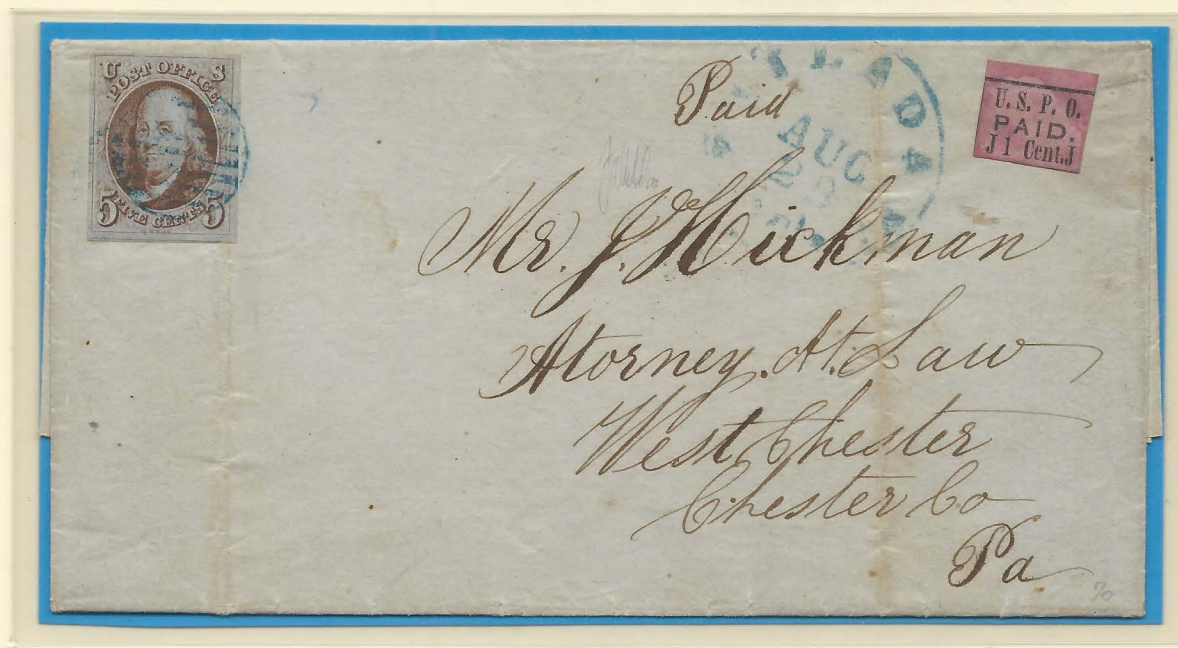 U S
POST OFFICE
5 FIVE CENTS 5
Paid
AUG
U. S. P. O.
PAID.
J 1 Cent. J
Mr. J. Hickman
Attorney. At. Law
West Chester
Chester Co
Pa
70